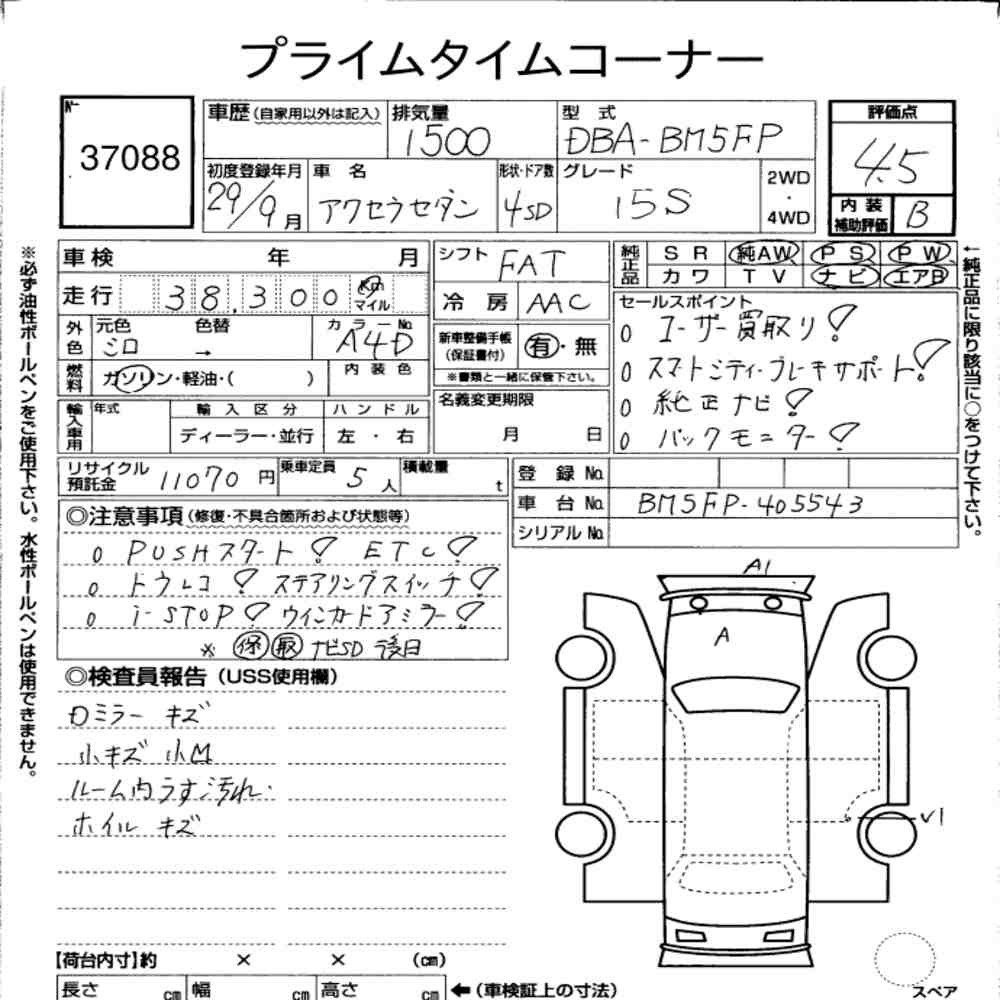 プライムタイムコーナー
№ 37088
車歴（自家用以外は記入） 排気量 1500 型式 DBA-BM5FP
評価点 4.5
初度登録年月 29/9月 車名 アクセラセダン 形状・ドア数 4SD グレード 15S 2WD・4WD
内装補助評価 B
車検 年 月
シフト FAT
純正品 SR 純AW PS PW
カワ TV ナビ エアB
走行 38,300 Km マイル
冷房 AAC
セールスポイント
外色 元色 シロ 色替 → カラーNo. A4D
新車整備手帳（保証書付） 有・無
※書類と一緒に保管下さい。
o ユーザー買取り!
o スマートシティ・ブレーキサポート!
o 純正ナビ!
o バックモニター!
燃料 ガソリン・軽油・（ ） 内装色
輸入車用 年式 輸入区分 ハンドル
ディーラー・並行 左・右
名義変更期限
月 日
リサイクル預託金 11070円 乗車定員 5人 積載量 t
登録No.
車台No. BM5FP-405543
シリアルNo.
◎注意事項（修復・不具合箇所および状態等）
o PUSHスタート! ETC!
o ドラレコ! ステアリングスイッチ!
o i-STOP! ウインカードアミラー!
※ 保 取 ナビSD 後日
◎検査員報告（USS使用欄）
ロミラー キズ
小キズ 小凹
ルーム内うす汚れ.
ホイル キズ
A1
A
V1
【荷台内寸】約 × × （cm）
長さ cm 幅 cm 高さ cm ←（車検証上の寸法）
スペア
※必ず油性ボールペンをご使用下さい。水性ボールペンは使用できません。
←純正品に限り該当に○をつけて下さい。